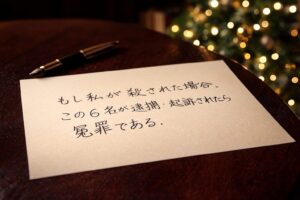 もし私が殺された場合、
この6名が逮捕・起訴されたら
冤罪である.